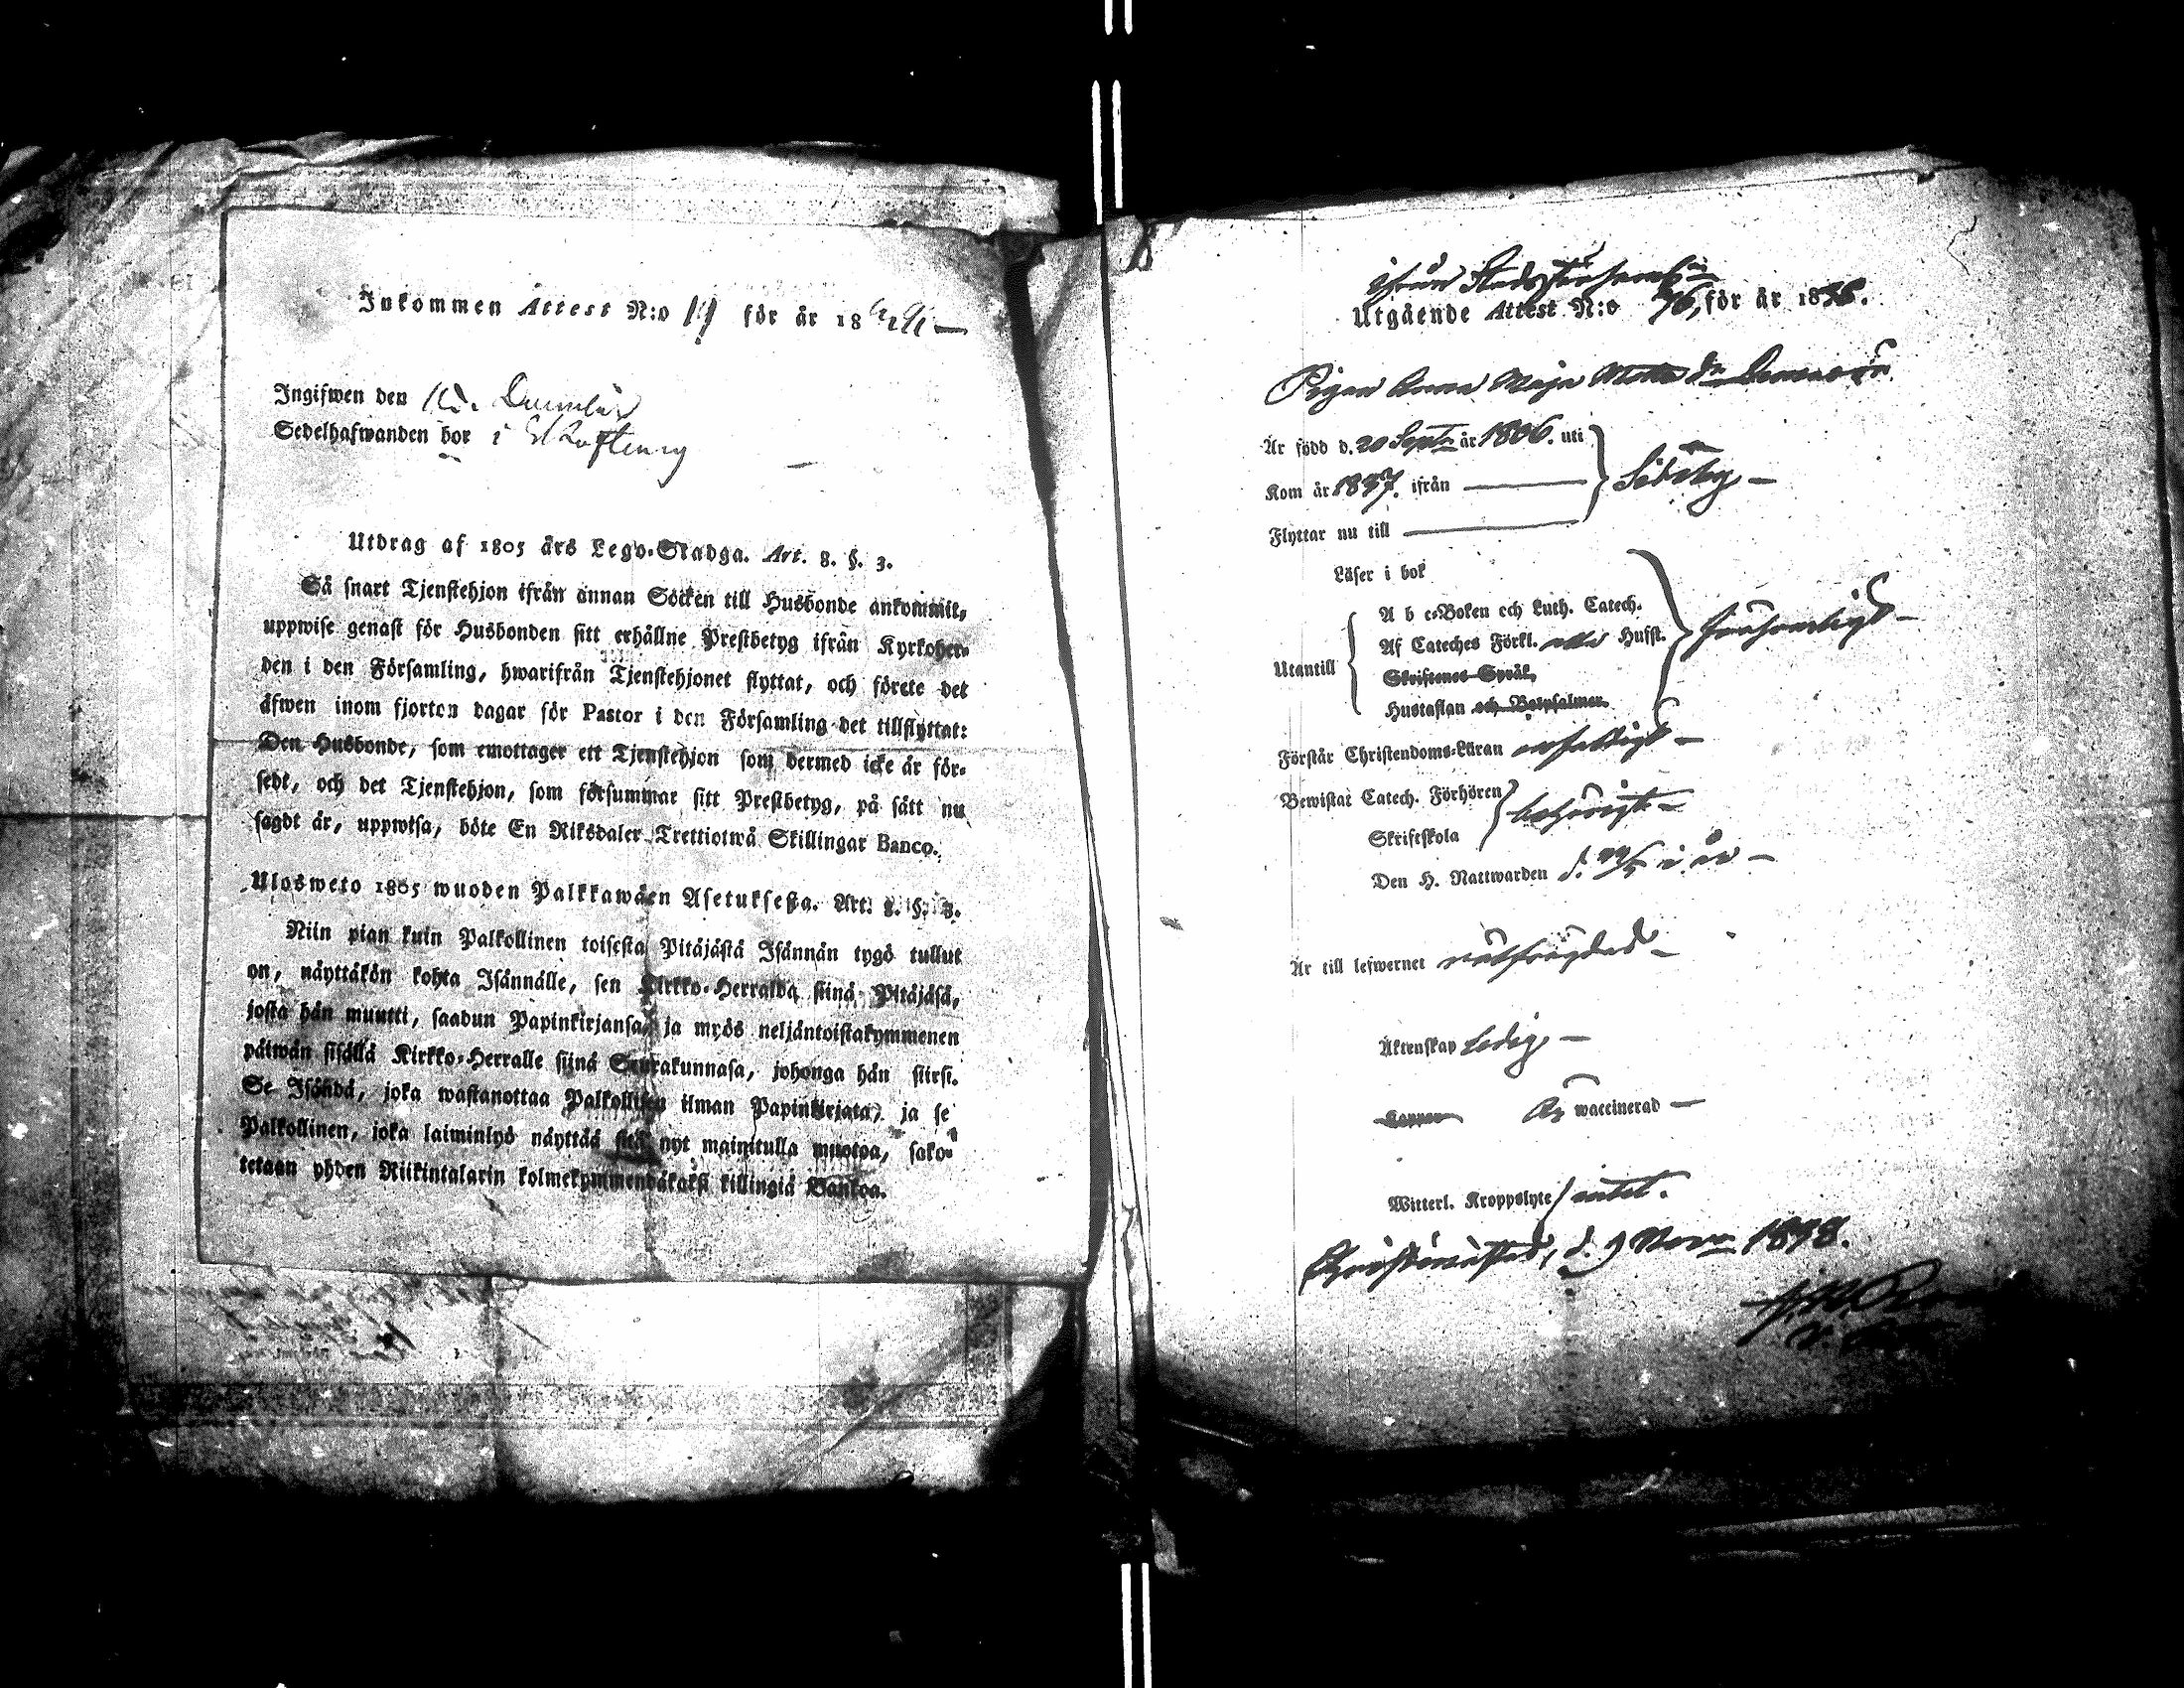 Inkommen Attest N:o för år 18
Ingifwen den
Sedelhafwanden bor i
Utdrag af 1805 års Lego-Stadga. Art. 8. §. 3.
Så snart Tjenstehjon ifrån annan Socken till Husbonde ankommit,
uppwise genast för Husbonden sitt erhållne Prestbetyg ifrån Kyrkoher-
den i den Församling, hwarifrån Tjenstehjonet flyttat, och förete det
äfwen inom fjorton dagar för Pastor i den Församling det tillflyttat:
Den Husbonde, som emottager ett Tjenstehjon som dermed icke är för-
sedt, och det Tjenstehjon, som försummar sitt Prestbetyg, på sätt nu
sagdt är, uppwisa, böte En Riksdaler Trettiotwå Skillingar Banco.
Ulosweto 1805 wuoden Palkkawäen Asetuksesta. Art. 8. §. 3.
Niin pian kuin Palkollinen toisesta Pitäjästä Isännän tygö tullut
on, näyttäkön kohta Isännälle, sen Kirkko-Herralda siinä Pitäjäsä,
josta hän muutti, saadun Papinkirjansa, ja myös neljäntoistakymmenen
päiwän sisällä Kirkko-Herralle siinä Seurakunnasa, johonga hän siirsi.
Se Isändä, joka wastanottaa Palkollisen ilman Papinkirjata, ja se
Palkollinen, joka laiminlyö näyttää sitä nyt mainitulla muotoa, sako-
tetaan yhden Riikintalarin kolmekymmendäkaksi killingiä Bankoa.
ifrån Stadsförsaml
Utgående Attest N:o 76, för år 1838.
Pigan Anna Maja
Är född d. 20 Sept år 1806. uti
Kom år 1837. ifrån Sideby
Flyttar nu till
Läser i bok
A b c-Boken och Luth. Catech.
Af Cateches Förkl. Hufst. försvarligt
Utantill
Skriftenes Språk,
Hustaflan och Botpsalmer.
Förstår Christendoms-Läran
Bewistat Catech. Förhören behörigt
Skriftskola
Den H. Nattwarden d. i år
Är till lefwernet välfrägdad
Äktenskap Ledig
Koppor Ej waccinerad
Witterl. Kroppslyte intet.
Christinestad, d. 9 Nov 1838.